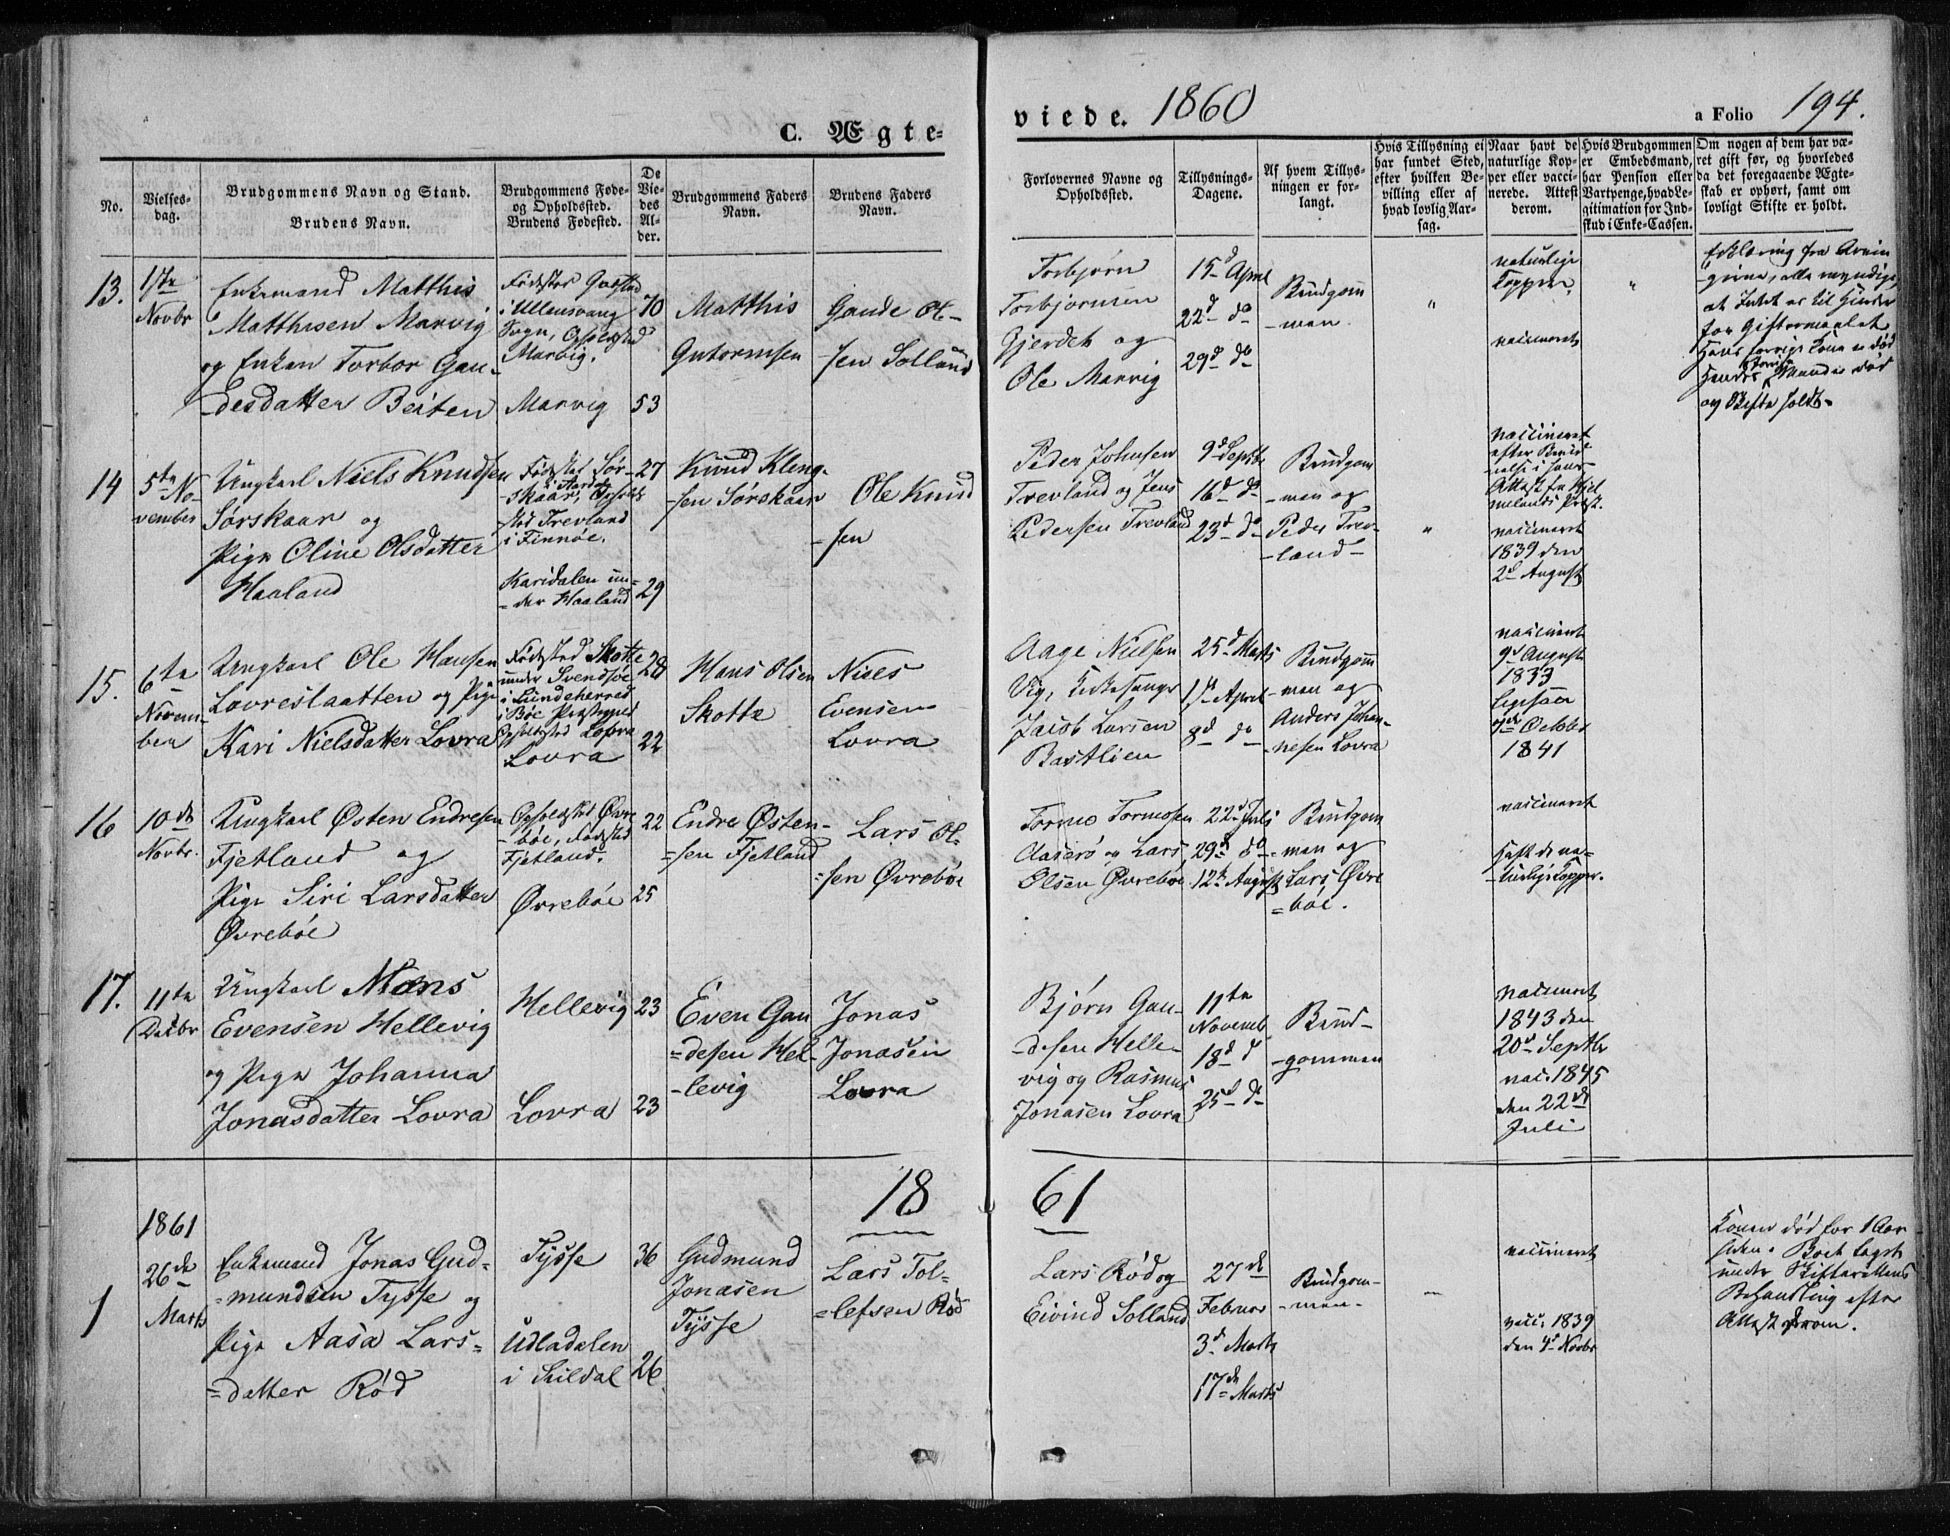 C. Ægte-
viede. 1860
a Folio 194.
No.
Vielses-
dag.
Brudgommens Navn og Stand.
Brudens Navn.
Brudgommens Føde-
og Opholdssted.
Brudens Fødested.
De
Vie-
des
Al-
der.
Brudgommens Faders
Navn.
Brudens Faders
Navn.
Forlovernes Navne og
Opholdssted.
Tillysnings-
Dagene.
Af hvem Tillys-
ningen er for-
langt.
Hvis Tillysning ei
har fundet Sted,
efter hvilken Be-
villing eller af
hvad lovlig Aar-
sag.
Naar havt de
naturlige Kop-
per eller vacci-
nerede. Attest
derom.
Hvis Brudgommen
er Embedsmand,
har Pension eller
Vartpenge, hvad Le-
gitimation for Ind-
skud i Enke-Cassen.
Om nogen af dem har væ-
ret gift før, og hvorledes
da det foregaaende Ægte-
skab er ophørt, samt om
lovligt Skifte er holdt.
13.
1ste
Novbr
Enkemand Matthis
Matthisen Marvig
og Enken Torbor Gau-
desdatter Beiten
Fødested
i Ullensvang
Sogn, Opholdssted
Marvig.
Marvig
70
53
Matthis
Gutormsen
Gaude Ol-
sen Solland
Torbjørn
Torbjørnsen
Gjerdet og
Ole Marvig
15d April
22d do
29d do
Brudgom
-men.
"
naturlige
Kopper.
vaccineret
"
Erklæring fra Arvin
gerne, alle myndige,
at Intet er til Hinder
for Giftermaalet
Hans forrige Kone er død
Hendes forrige Mand er død
og Skifte holdt-
14
5te No-
vember
Ungkarl Niels Knudsen
Sørskaar og
Pige Oline Olsdatter
Haaland
Fødested Sør-
skaar, i Aardal Opholds
sted Trevland
i Finnøe.
Karidalen un-
der Haaland
27
29
Knud Kleng-
sen Sørskaar
Ole Knud
-sen
Peder Johnsen
Trevland og Jens
Pedersen Trevland
9d Septbr
16d do
23d do
Brudgom
-men og
Peder Trev-
-land-
"
vaccineret
efter
i Hans
Attest fra Hjel
melands Præst.
vaccineret
1839 den
2d August
15.
6te
Novem-
ber
Ungkarl Ole Hansen
Lovreslaatten og Pige
Kari Nielsdatter Lovra
Fødested Skotte
under Svendsøe
i Sundeherred
i Bøe Præstegjeld
Opholdssted Lovra
Lovra
28
22
Hans Olsen
Skotte
Niels
Evensen
Lovra
Aage Nielsen
Vig, Kirkesanger
Jacob Larsen
Bastlien
25d Marts
1ste April
8d do
Brudgom
-men og
Anders Johan-
nesen Lovra
vaccineret
9d August
1833
Ligesaa
October
1841
16
10de
Novbr.
Ungkarl Østen Endresen
Fjetland og
Pige Siri Larsdatter
Øvrebøe
Opholdssted Øvre
-bøe, Fødested
Fjetland.
Øvrebøe
22
25
Endre Østen-
-sen Fjetland
Lars Ol-
-sen Øvrebøe
Tormo Tormosen
Aaserø og Lars
Olsen Øvrebøe
22d Juli
29d do
12te August
Brudgom
-men og
Lars Øvre
-bøe.
vaccineret
Havt de na-
-turlige Kopper.
17.
11te
Decbr
Ungkarl Mons
Evensen Hellevig
og Pige Johanna
Jonasdatter Lovra
Hellevig
Lovra
23
23
Even Gau
-desen Hel-
-levig
Jonas
Jonasen
Lovra
Bjørn Gau-
-desen Helle-
vig og Rasmus
Jonasen Lovra
11te
Novemb.
18d do
25d do
Brud-
-gommen
vaccineret
1843 den
20d Septbr
vac. 1845
den 22de
Juli
1861
1861
1
26de
Marts
Enkemand Jonas Gud-
-mundsen Tysse og
Pige Aasa Lars-
-datter Rød
Tysse
Udladalen
i Suldal
36
26
Gudmund
Jonasen
Tysse
Lars Tol-
-lefsen Rød
Lars Rød og
Eivind Solland
27de
Februar
3d Marts
17de Marts
Brudgom-
-men-
-
vaccineret
vacc. 1839
den 4d Novbr
Konen død for 1 Aar
siden. Boet tages
under Skifterettens
Behandling efter
Attest derom.